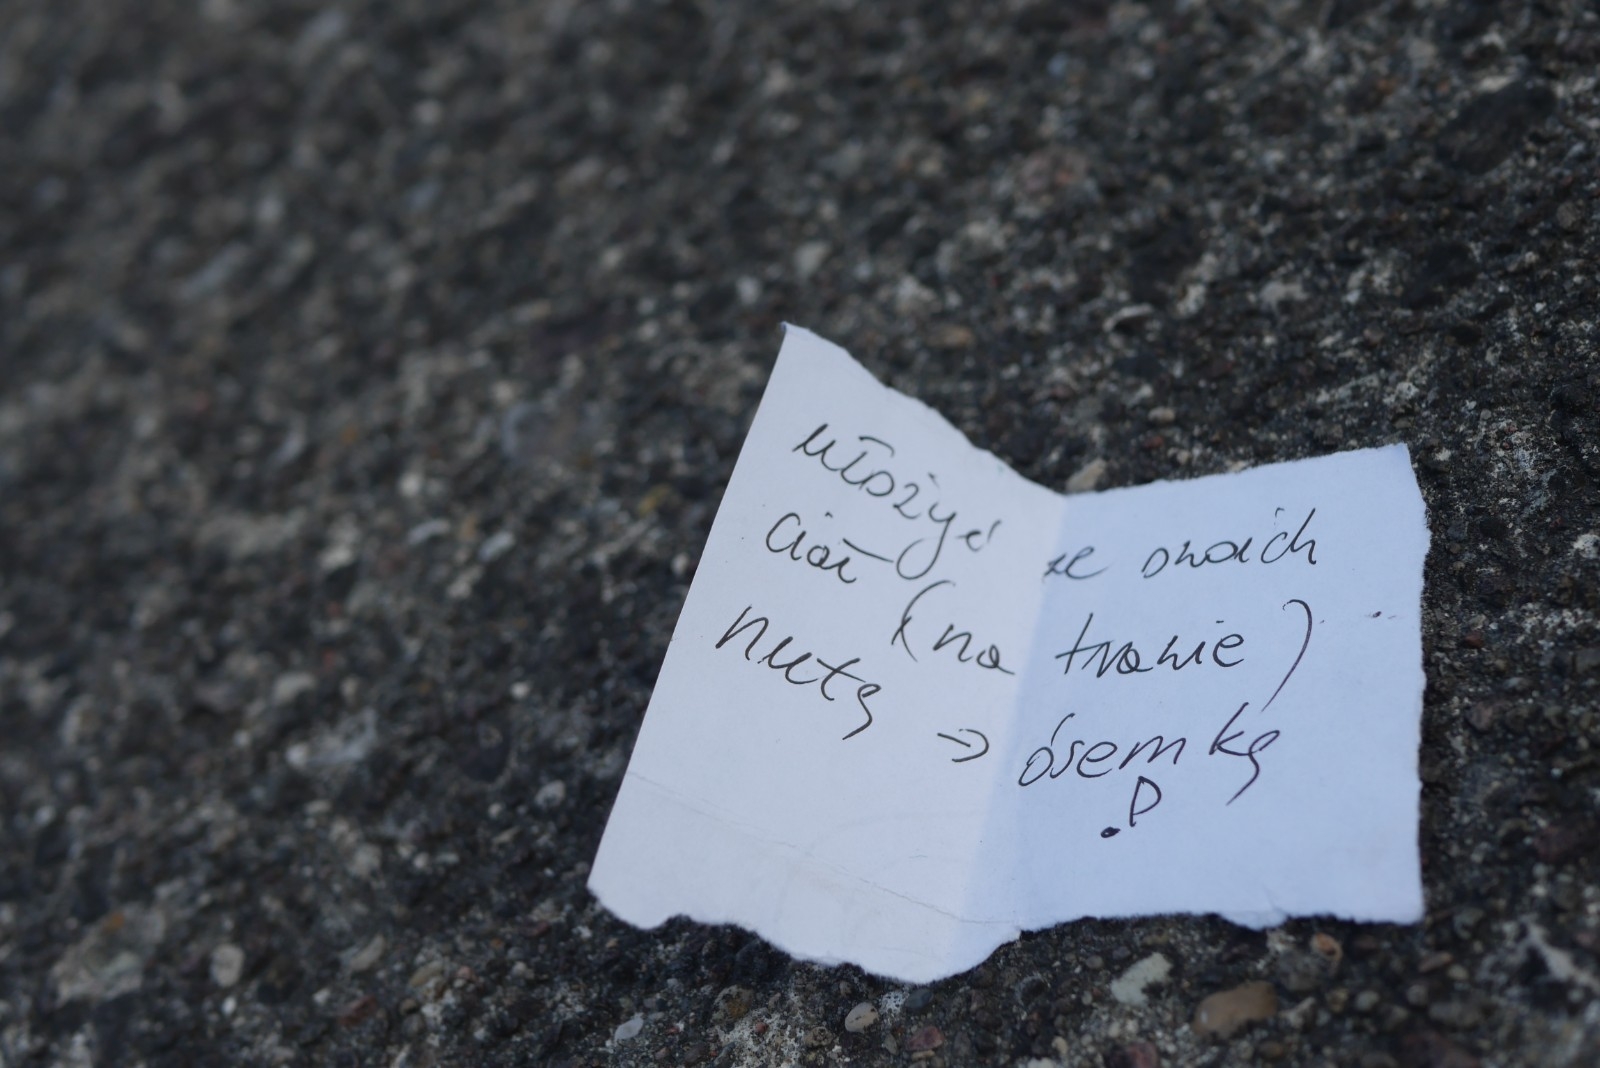 ułożyć ze swoich
ciał (na trawie)
nutę → ósemkę